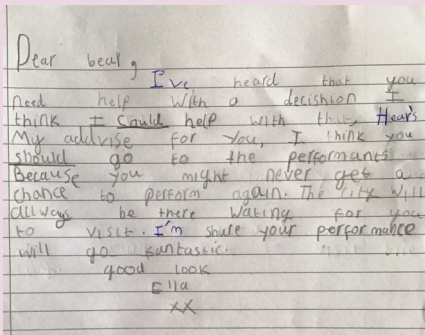 Dear bear,
I've heard that you
need help with a decishion I
think I could help with that, Hear's
My addvise for you, I think you
should go to the performants
Because you might never get a
chance to perform again. The city will
allways be there wating for you
to visit. I'm shure your performance
will go fantastic.
good look
Ella
xx